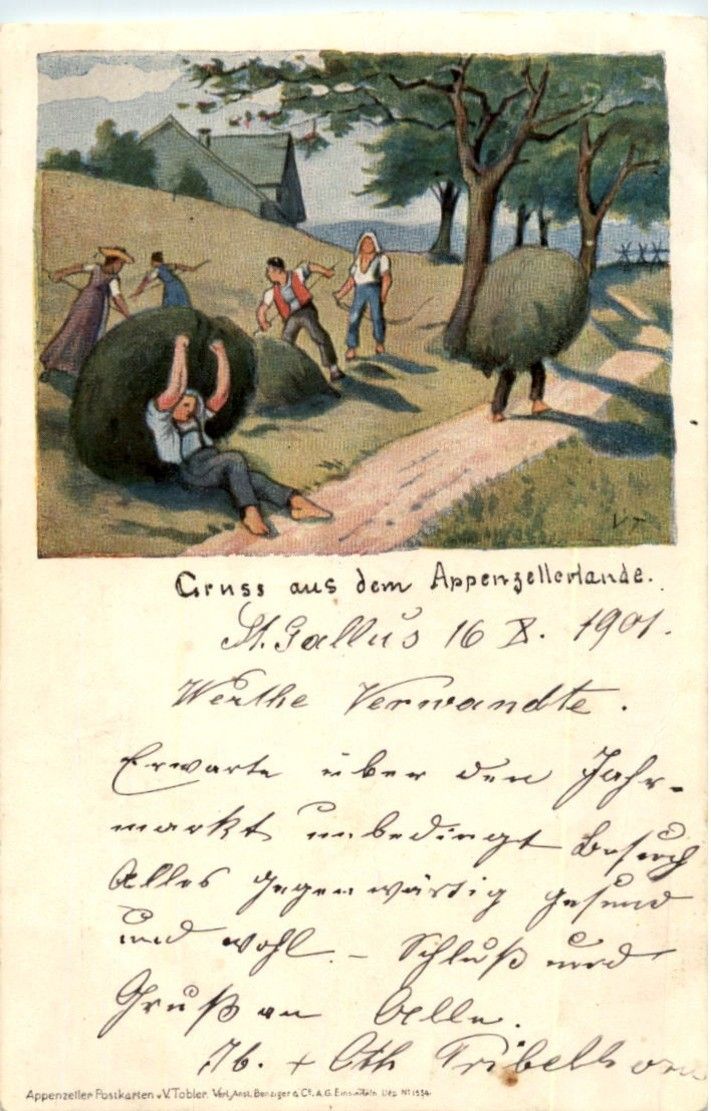 V.T.
Gruss aus dem Appenzellerlande.
St. Gallus 16 X. 1901.
Werthe Verwandte.
Erwarte über den Jahr-
markt unbedingt Besuch
Alles gegenwärtig gesund
und wohl. - Schluß und
Gruß an Alle.
Jb. + Oth Tribelhorn
Appenzeller Postkarten v. V. Tobler. Verl. Anst. Benziger & Co. A.G. Einsiedeln. Dep. No 1534.